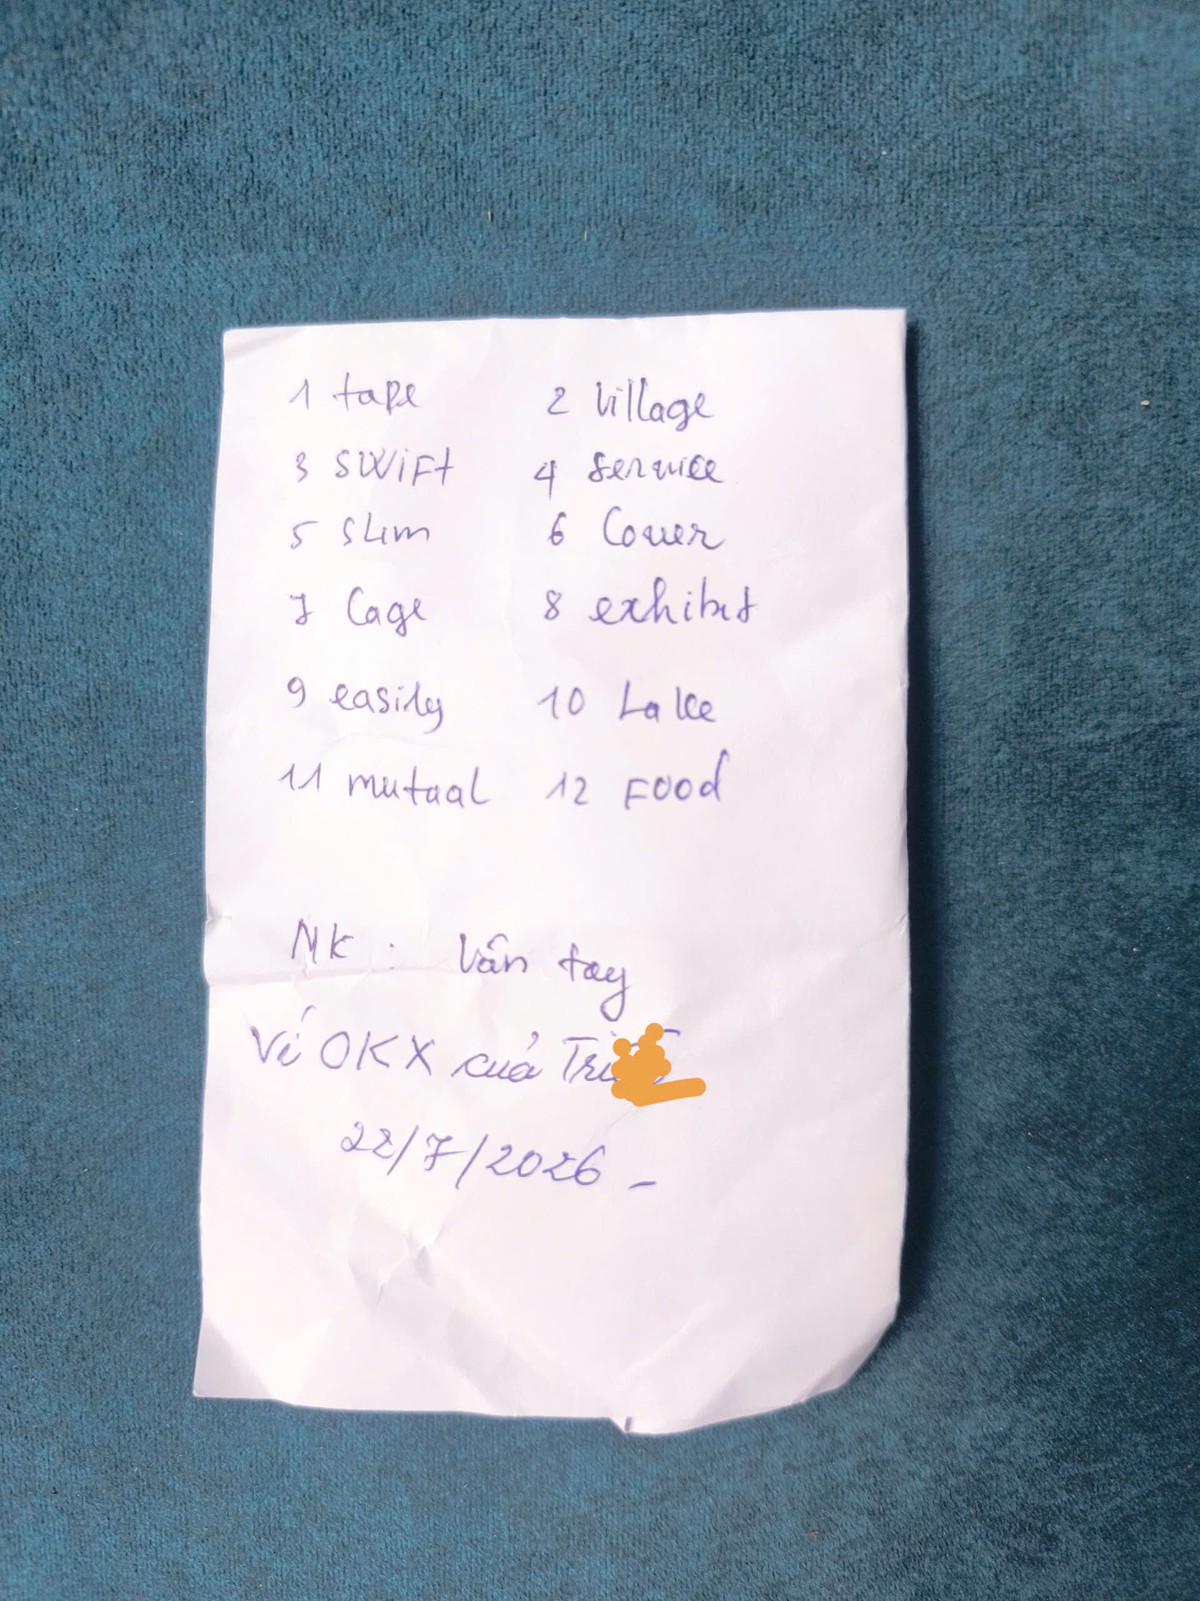 1 tape 2 village
3 swift 4 service
5 slim 6 cover
7 cage 8 exhibit
9 easily 10 lake
11 mutual 12 food
MK : Vân tay
Ví OKX của
22/7/2026 -